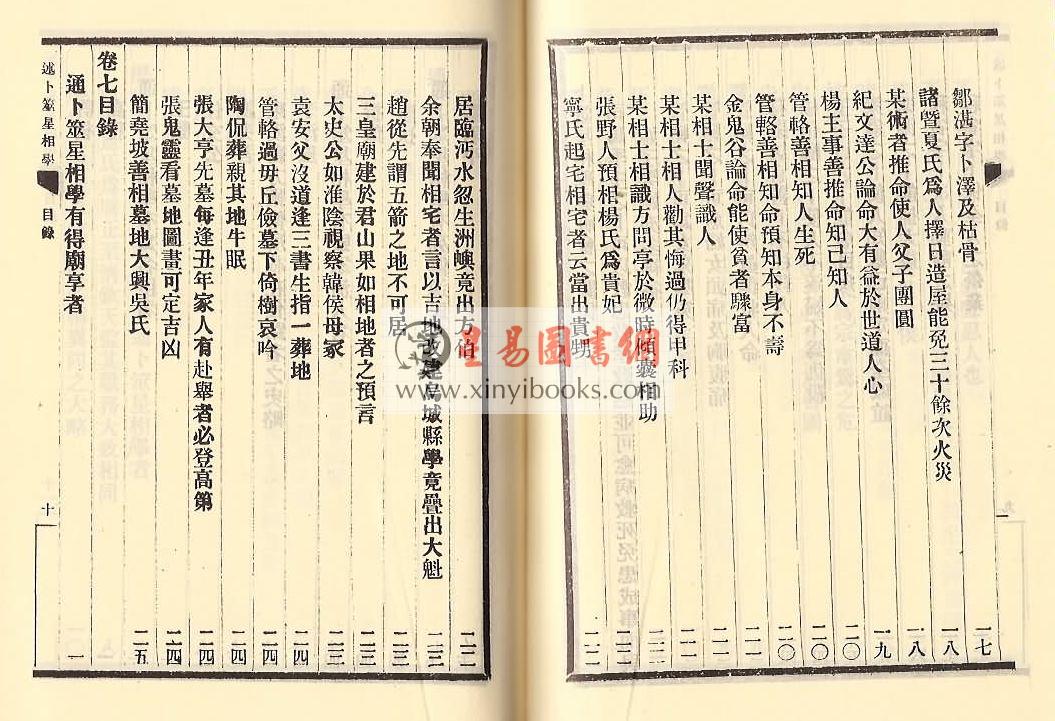 鄒湛字卜澤及枯骨 一七
諸暨夏氏爲人擇日造屋能免三十餘次火災 一八
某術者推命使人父子團圓 一八
紀文達公論命大有益於世道人心 一九
楊主事善推命知己知人 二〇
管輅善相知人生死 二〇
管輅善相知命預知本身不壽 二〇
金鬼谷論命能使貧者驟富 二一
某相士聞聲識人 二一
某相士相人勸其悔過仍得甲科 二一
某相士相識方問亭於微時傾囊相助
張野人預相楊氏爲貴妃
寧氏起宅相宅者云當出貴甥
星易圖書網
www.xinyibooks.com
居臨沔水忽生洲嶼竟出方伯
余朝奉聞相宅者言以吉地改建烏城縣學竟疊出大魁
趙從先謂五箭之地不可居
三皇廟建於君山果如相地者之預言
太史公如淮陰視察韓侯母冢
袁安父沒道逢三書生指一葬地 二四
管輅過毋丘儉墓下倚樹哀吟 二四
陶侃葬親其地牛眠 二四
張大亨先墓每逢丑年家人有赴舉者必登高第 二四
張鬼靈看墓地圖畫可定吉凶 二四
簡堯坡善相墓地大興吳氏 二五
卷七目錄
通卜筮星相學有得廟享者 一
述卜筮星相學 目錄 十